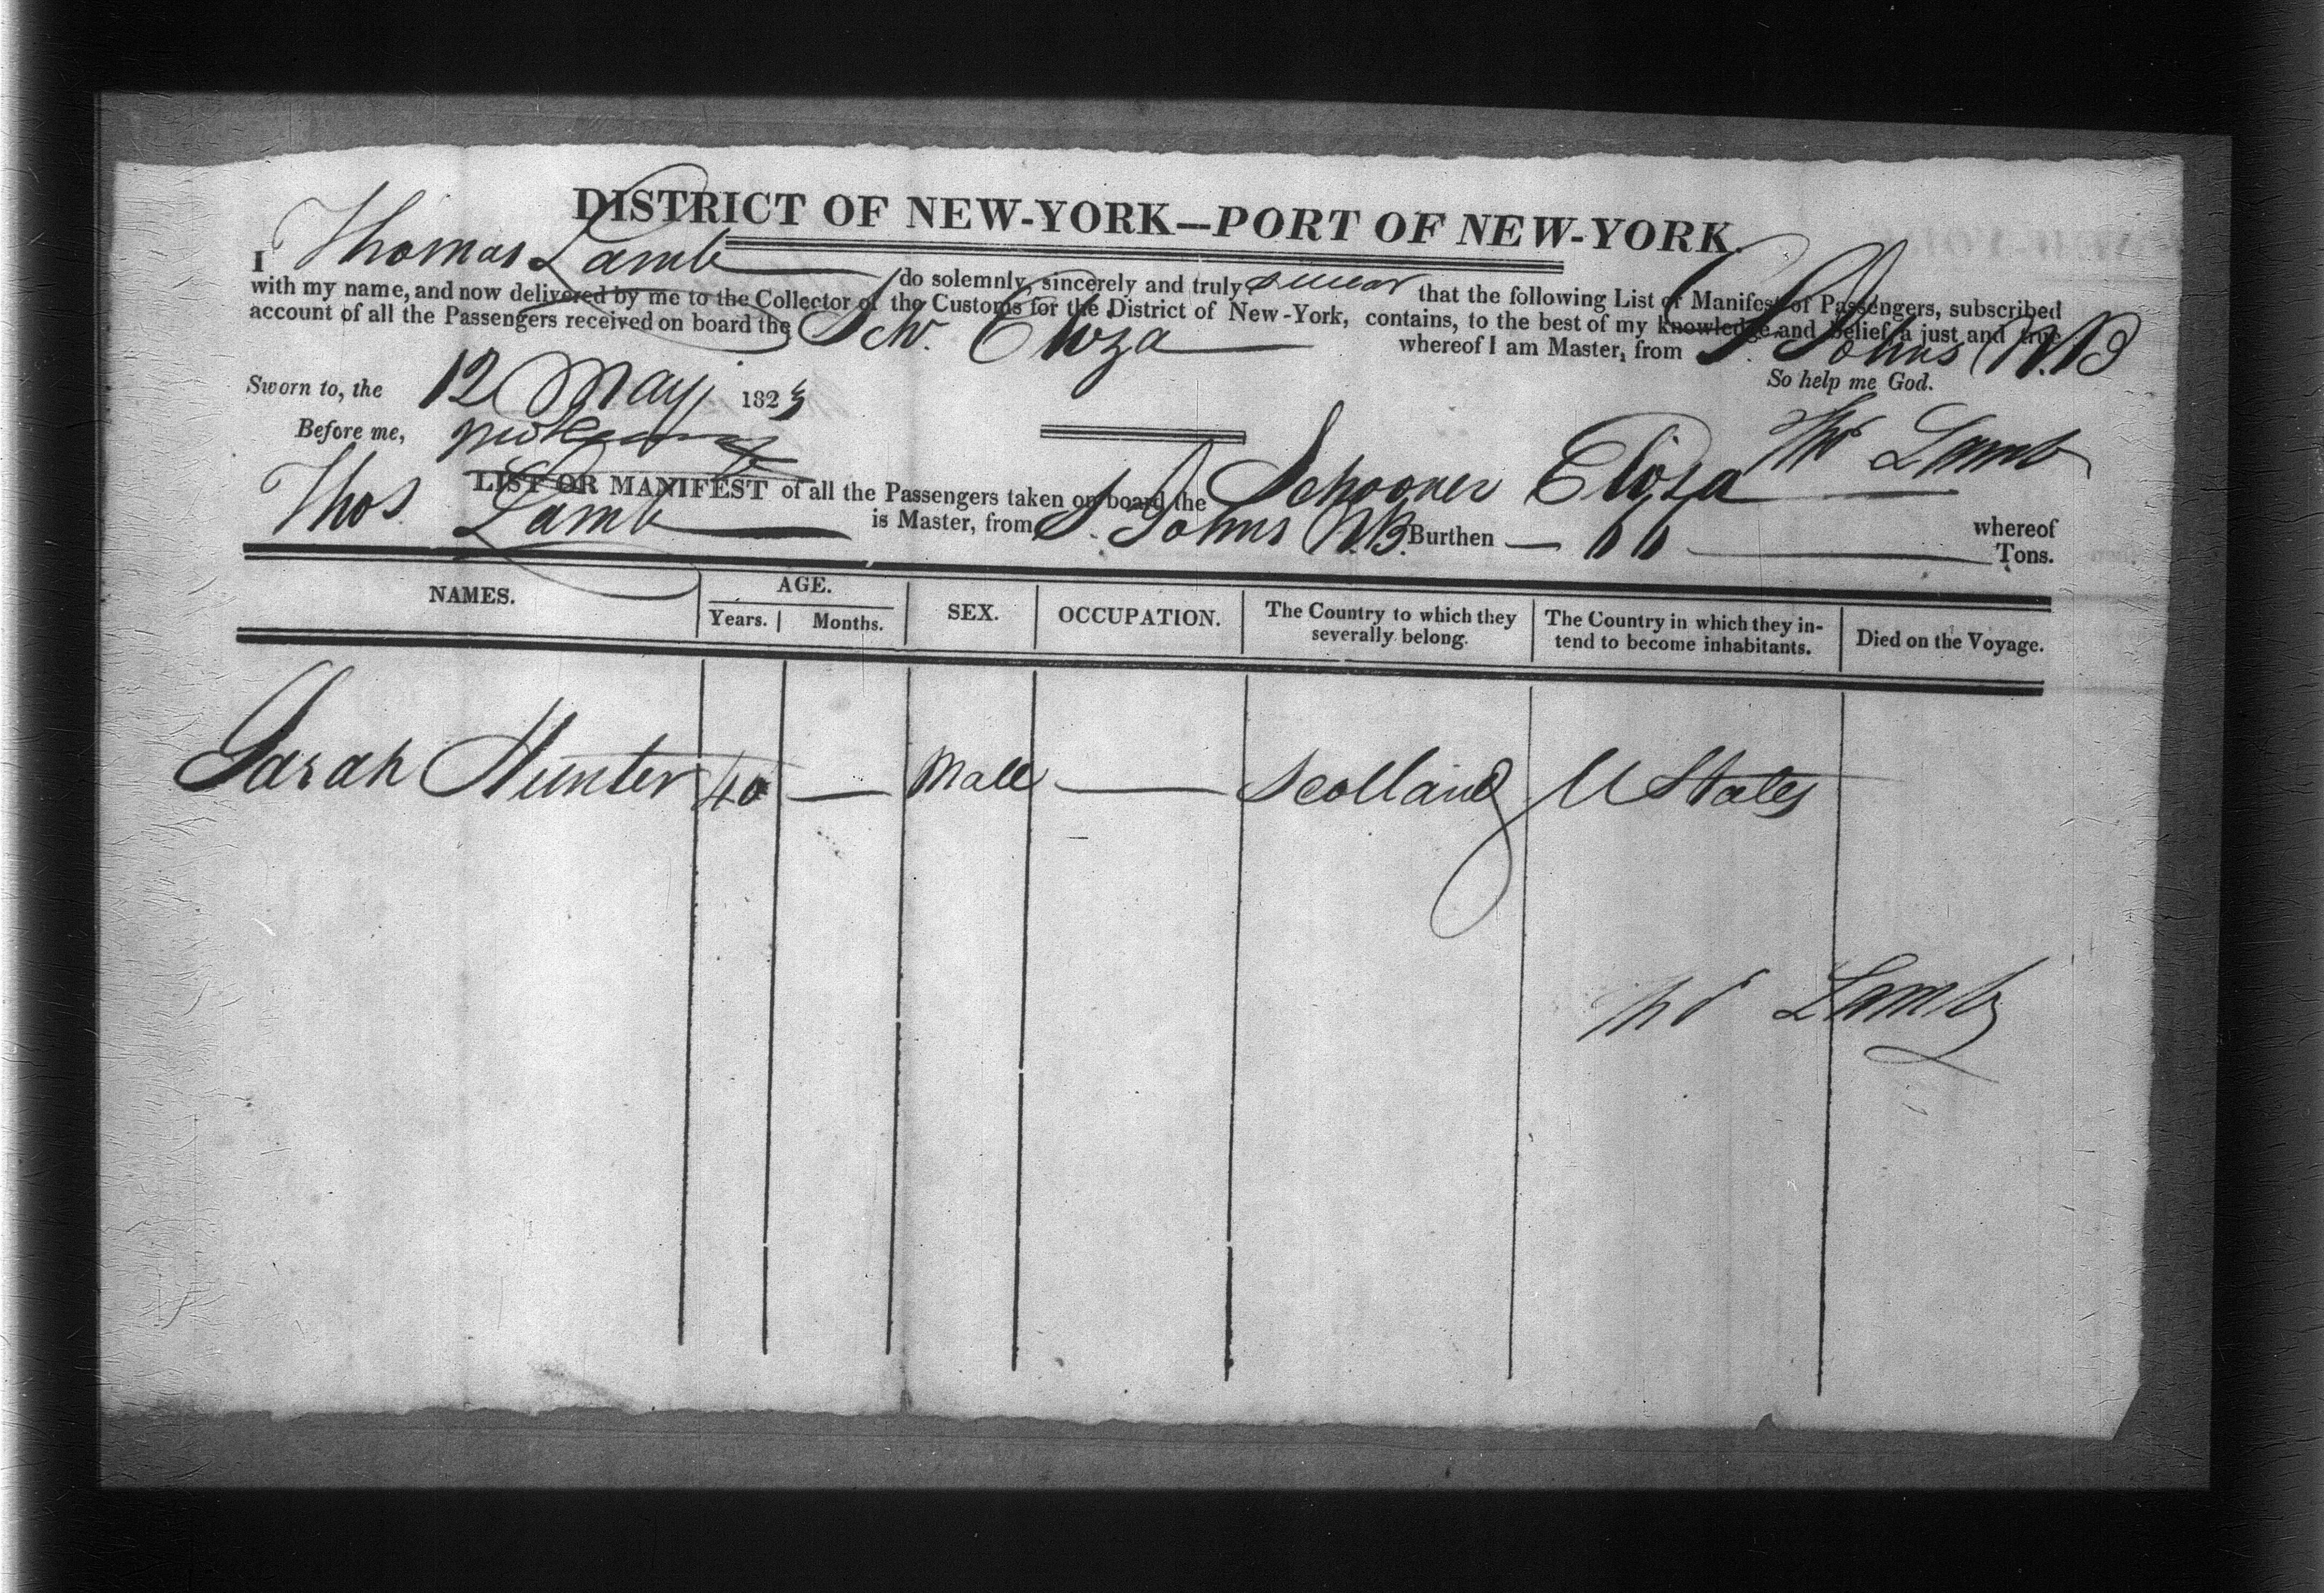 DISTRICT OF NEW-YORK—PORT OF NEW-YORK.
I Thomas Lamb do solemnly, sincerely and truly swear that the following List or Manifest of Passengers, subscribed
with my name, and now delivered by me to the Collector of the Customs for the District of New-York, contains, to the best of my knowledge and belief, a just and true
account of all the Passengers received on board the Schr. Eliza whereof I am Master, from St. Johns N.B
Sworn to, the 12 May 1823 So help me God.
Before me, Thos Lamb
LIST OR MANIFEST of all the Passengers taken on board the Schooner Eliza whereof
Thos Lamb is Master, from St. Johns N.B. Burthen — — Tons.
NAMES. AGE. Years. Months. SEX. OCCUPATION. The Country to which they severally belong. The Country in which they intend to become inhabitants. Died on the Voyage.
Sarah Hunter 40 — Male — Scotland U States
Thos Lamb